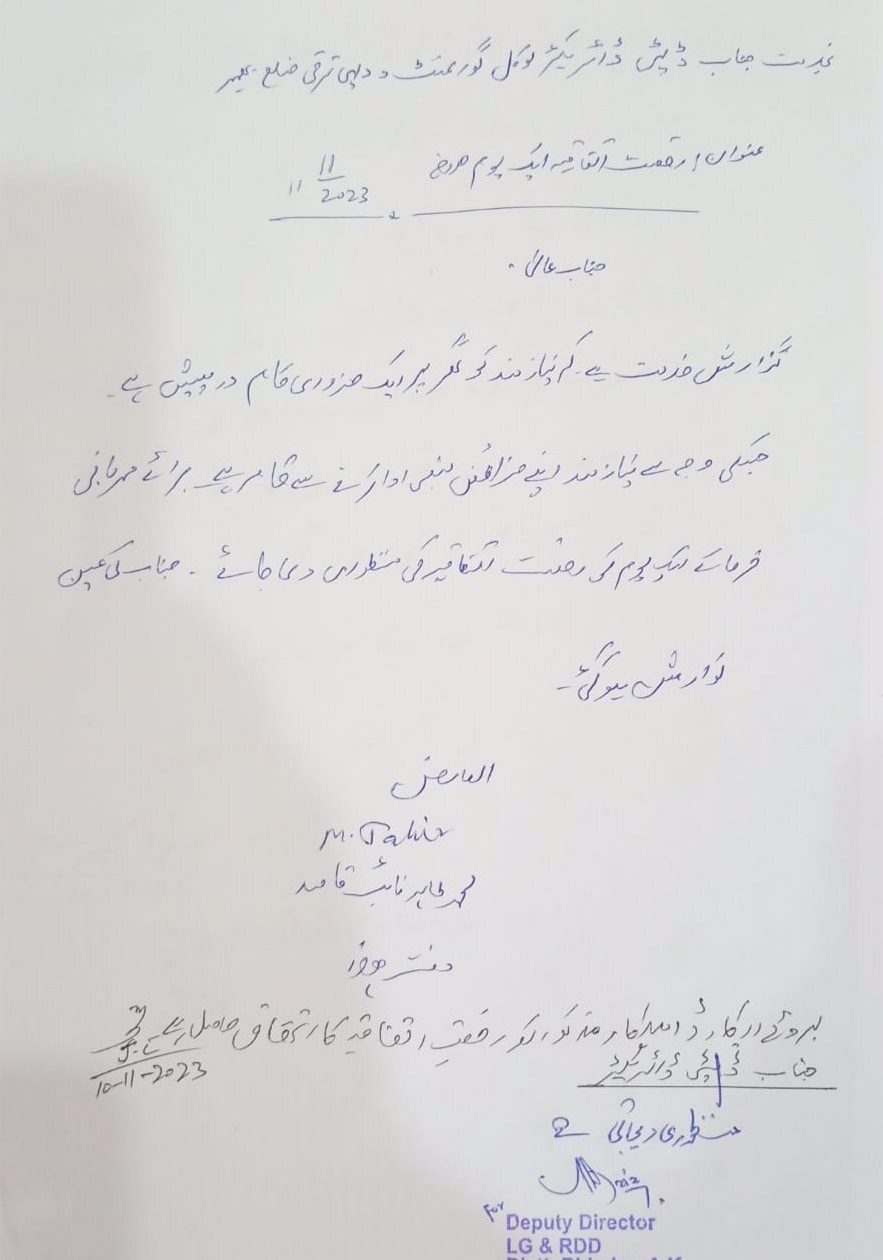 بخدمت جناب ڈپٹی ڈائریکٹر لوکل گورنمنٹ و دیہی ترقی ضلع بھمبر
عنوان: رخصت اتفاقیہ ایک یوم مورخہ 11/11 2023
جناب عالی
گزارش خدمت ہے۔ کہ نیاز مند کو گھر پر ایک ضروری کام درپیش ہے۔
جسکی وجہ سے نیاز مند اپنے فرائض منصبی ادا کرنے سے قاصر ہے۔ برائے مہربانی
فرما کے ایک یوم کی رخصت اتفاقیہ کی منظوری دی جائے۔ جناب کی عین
نوازش ہوگی۔
العارض
M. Tahir
محمد طاہر نائب قاصد
دفتر ہذا
بروئے ریکارڈ اہلکار مذکور کو رخصت اتفاقیہ کا استحقاق حاصل ہے
10-11-2023
جناب ڈپٹی ڈائریکٹر
منظوری دی جاتی ہے
For
Deputy Director
LG & RDD